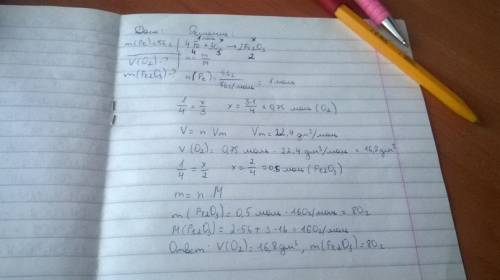 Дано: Решение
m(Fe)=56г 4Fe + 3O₂ → 2Fe₂O₃
V(O₂)-? n = m/M
m(Fe₂O₃)-? n(Fe) = 56г/56г/моль = 1 моль
1/4 = x/3 x = 3·1/4 = 0,75 моль (O₂)
V = n · Vm Vm = 22,4 дм³/моль
V(O₂) = 0,75 моль · 22,4 дм³/моль = 16,8 дм³
1/4 = x/2 x = 2/4 = 0,5 моль (Fe₂O₃)
m = n · M
m(Fe₂O₃) = 0,5 моль · 160г/моль = 80г
M(Fe₂O₃) = 2·56 + 3·16 = 160г/моль
Ответ: V(O₂) = 16,8 дм³, m(Fe₂O₃) = 80г